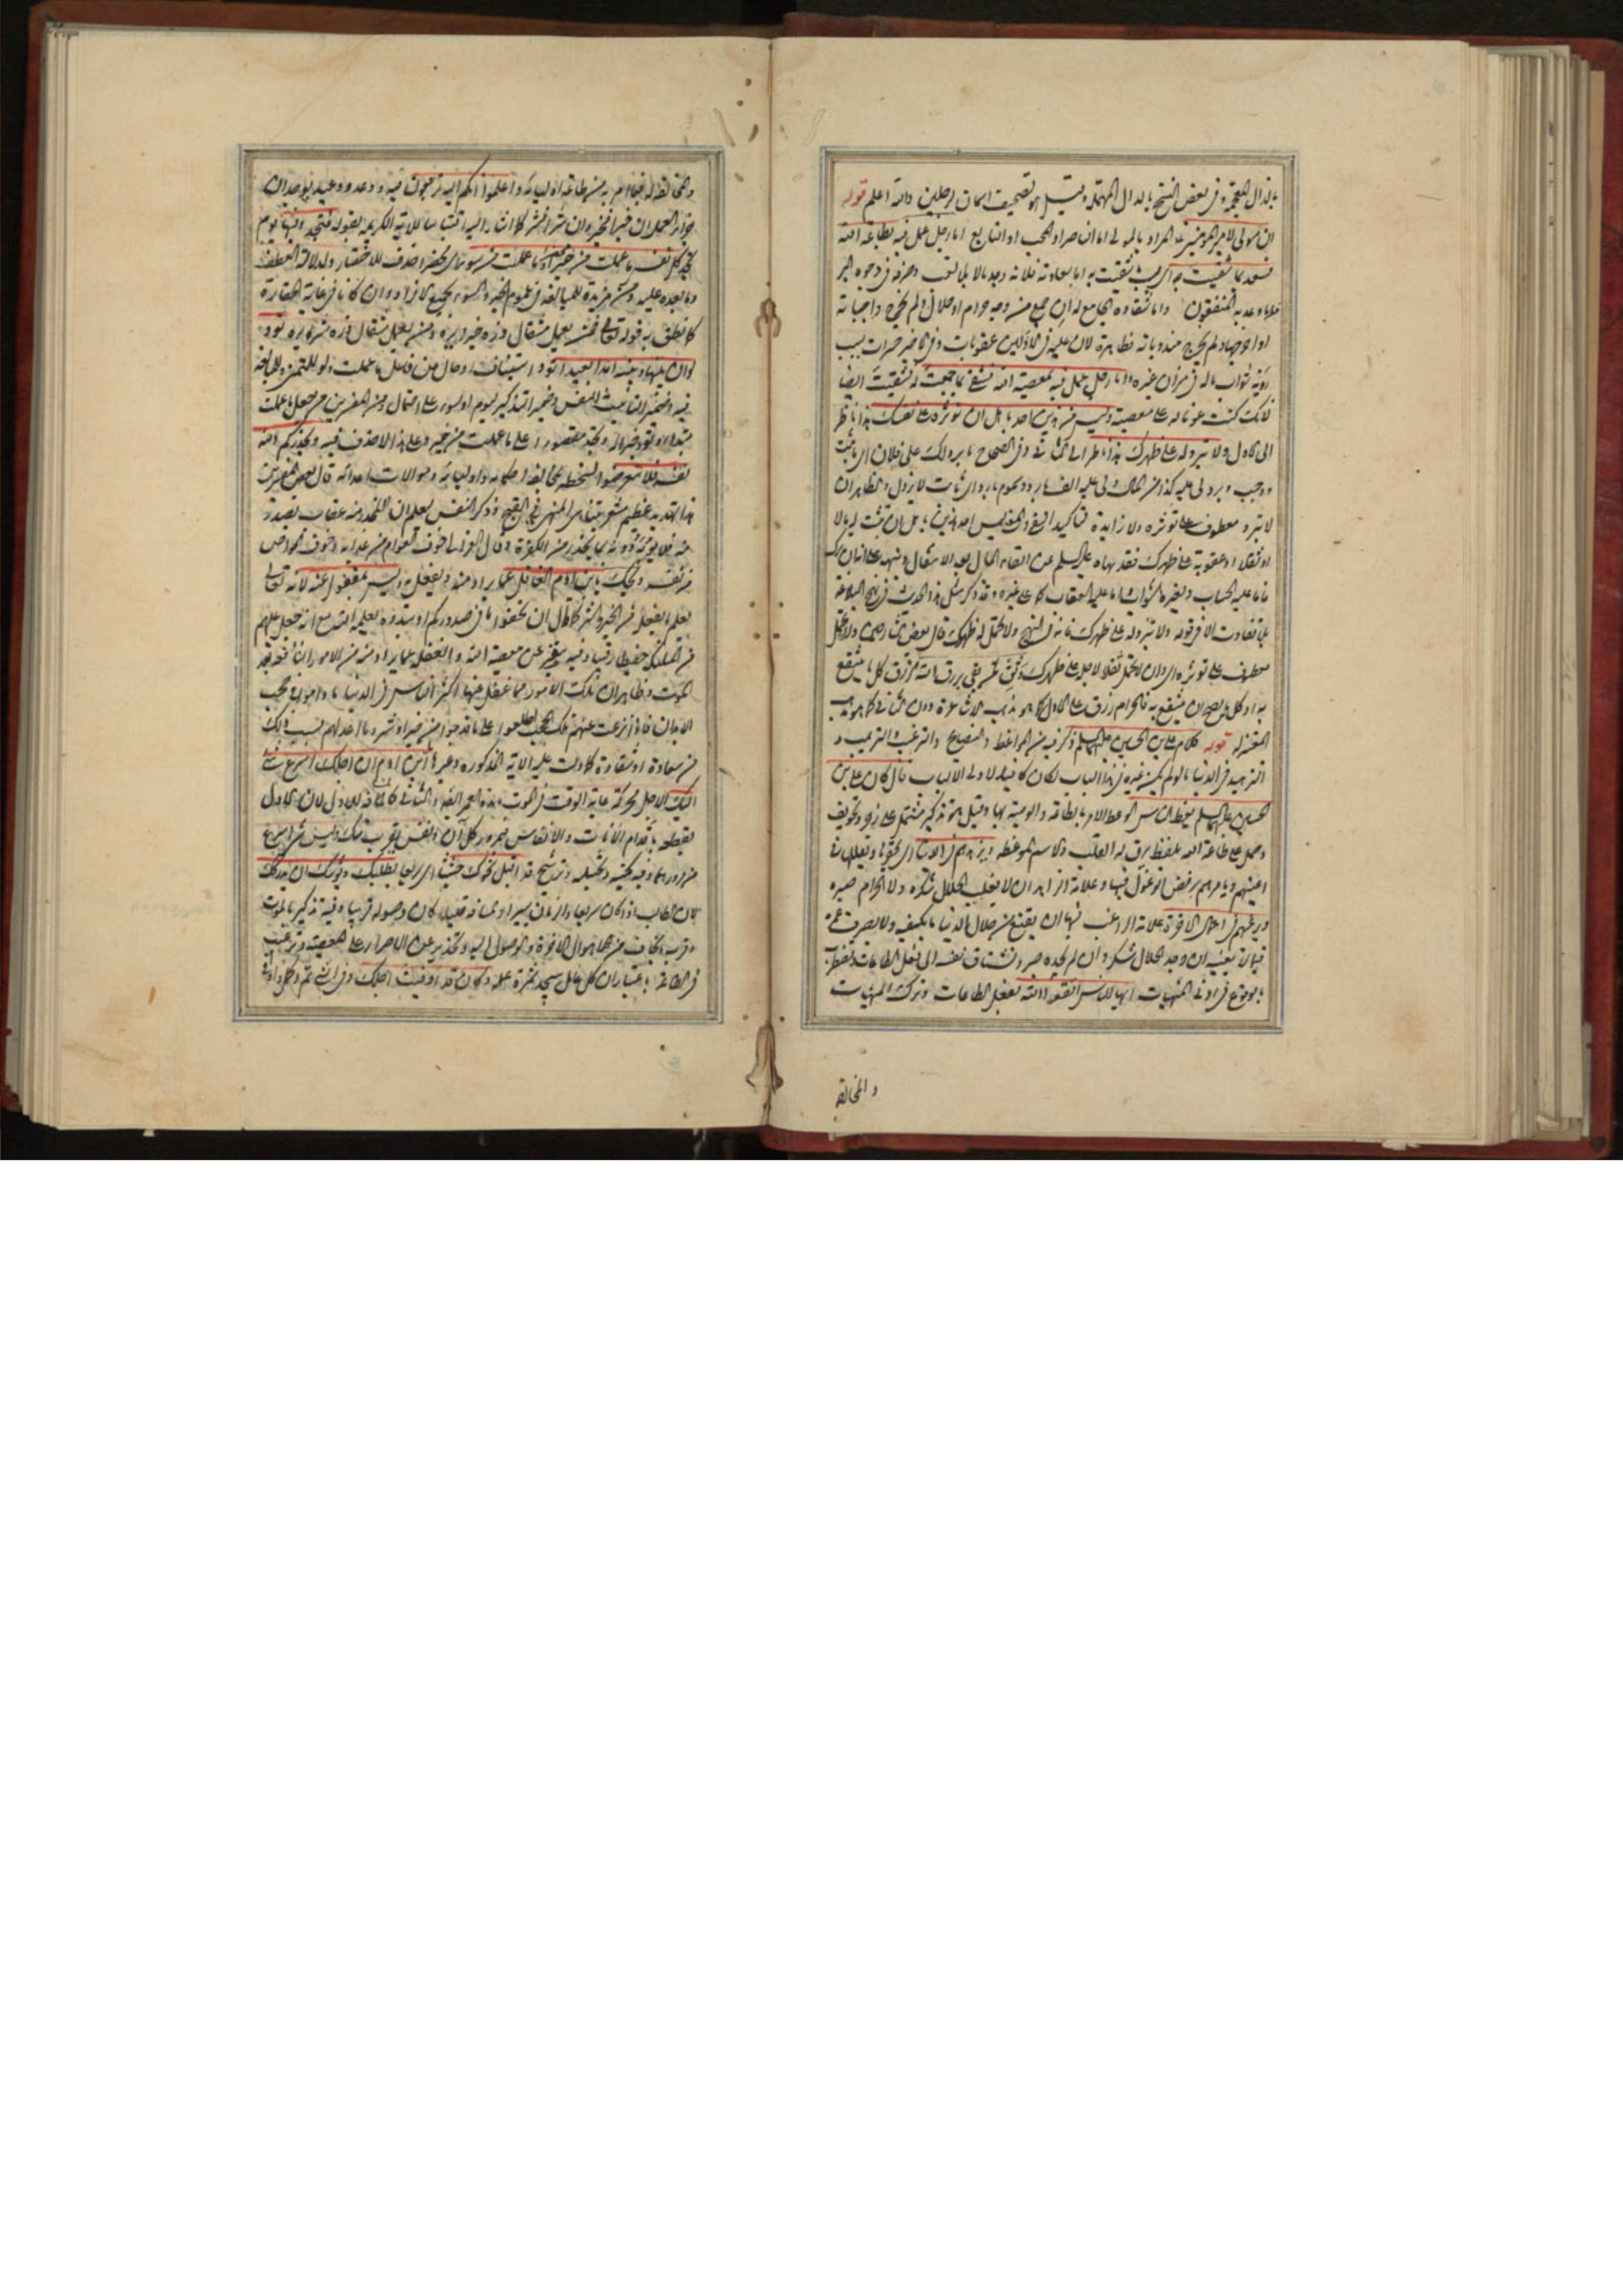 بالذال المعجمة وفي بعض النسخ بالدال المهملة وقيل هو تصحيف اسمان لرجلين والله اعلم قوله
ان مولى لامير المؤمنين عه المراد بالمولى اما الناصر او المحب او التابع اما رجل عمل فيه بطاعة الله
فسعد بما شقيت به اي بما شقيت به اما سعادته فلانه وجد مالا بلا تعب وصرفه في وجوه البر
كما وعد به المنفقون واما شقاوة الجامع له ان جمع من وجه حرام او حلال ولم يخرج واجباته
او اخرجها ولم يخرج مندوباته فظاهرة لان عليه في الاولين عقوبات وفي الاخير حسرات بسبب
رؤية ثواب ماله في ميزان غيره واما رجل عمل فيه بمعصية الله فشقي بما جمعت له فشقيت ايضا
لانك كنت عونا له على معصية وليس من هذين احد باهل ان تؤثره على نفسك هذا ناظر
الى الاول ولا تبرد له على ظهرك هذا ناظر الى الثاني وفي الصحاح ما برد لك على فلان اي ما ثبت
ووجب وبرد لي عليه كذا من المال ولي عليه الف بارد وسموم بارد اي ثابت لا يزول والظاهر ان
لا تبرد معطوف على تؤثره ولا زايدة لتاكيد النفي والمعنى ليس احد هذين باهل ان تثبت له مالا
او ثقلا او عقوبة على ظهرك فقد نهاه عليه السلم عن ابقاء المال بعد الانتقال ونبهه على انه ان ترك
فاما عليه الحساب ولغيره الثواب او عليه العقاب كما على غيره وقد ذكر مثل هذا الحديث في نهج البلاغة
بلا تفاوت الا في قوله ولا تبرد له على ظهرك فانه في النهج ولا تحمل له ظهرك قال بعض الشارحين ولا تحمل
معطوف على تؤثره اي ولا ان تحمل ثقلا لاجله على ظهرك وثق لمن بقي برزق الله الرزق كل ما ينتفع
به او كل ما يصح ان ينتفع به فالحرام رزق على الاول كما هو مذهب الاشاعرة دون الثاني كما هو مذهب
المعتزلة قوله كلام علي بن الحسين عليهما السلم ذكر فيه من المواعظ والنصايح والترغيب والترهيب و
التزهيد في الدنيا ما لو لم يكن غيره في هذا الباب لكان كافيا لاولي الالباب قال كان علي بن
الحسين عليهما السلم يعظ الناس الوعظ الامر بالطاعة والوصية بها وقيل هو تذكير مشتمل على زجر وتخويف
وحمل على طاعة الله بلفظ يرق له القلب والاسم الموعظة ويزهدهم في الدنيا اي بتحقيرها وتقليلها في
اعينهم ويامرهم برفض الوغول فيها وعلامة الزاهد ان لا يغلب الحلال شكره ولا الحرام صبره
ويرغبهم في اعمال الاخرة علامة الراغب فيها ان يقنع من حلال الدنيا ما يكفيه ولا يصرف عمره
فيما لا يعنيه ان وجد الحلال شكر وان لم يجده صبر وتشتاق نفسه الى فعل الطاعات وتضطرب
بالوقوع في ادنى المنهيات ايها الناس اتقوا الله بفعل الطاعات وترك المنهيات
والمخالفة
والمخالفة له فيما امر به من طاعة اوليائه واعلموا انكم اليه ترجعون فيه وعد ووعيد بوجدان
جزاء العمل ان خيرا فخير وان شرا فشر كما اشار اليه اقتباسا للاية الكريمة بقوله فتجد وفيها يوم
تجد كل نفس ما عملت من خير محضرا وما عملت من سوء اي محضرا حذف للاختصار ولدلالة العطف
وما بعده عليه ومن مزيدة للمبالغة في عموم الخير والسوء بجميع الافراد وان كانا في غاية الحقارة
كما نطق به قوله تعالى فمن يعمل مثقال ذرة خيرا يره ومن يعمل مثقال ذرة شرا يره تود
لو ان بينها وبينه امدا بعيدا تود استيناف او حال من فاعل ما عملت ولو للتمني وللمبالغة
فيه وضمير التانيث للنفس وضمير التذكير ليوم او لسوء على احتمال ومن المفسرين من جعل ما عملت
مبتدا وتود خبرا له وتجد مقصورا على ما عملت من خير وعلى هذا لا حذف فيه ويحذركم الله
نفسه فلا تتعرضوا لسخطه بمخالفة احكامه واوليائه وموالات اعدائه قال بعض المفسرين
هذا تهديد عظيم مشعر بتناهي المنهي في القبح وذكر النفس ليعلم ان المحذر منه عقاب يصدر
منه فلا يؤبه دونه بما يحذر من الكفرة وقال الغزالي خوف العوام من عذابه وخوف الخواص
من نفسه ويحك يا بن ادم الغافل عما يراد منه ويفعل به وليس بمغفول عنه لانه تعالى
يعلم ما يفعله من الخير والشر كما قال ان تخفوا ما في صدوركم او تبدوه يعلمه الله مع انه جعل عليهم
من الملائكة حفيظا رقيبا وفيه تنفير عن معصية الله والغفلة عما يراد منه من الامور النافعة بعد
الموت وظاهر ان تلك الامور مما غفل عنها اكثر الناس في الدنيا ما داموا في حجب
الابدان فاذا نزعت عنهم تلك الحجب اطلعوا على ما قدموا من خير او شر وما اعد لهم بسبب ذلك
من سعادة او شقاوة كما دلت عليه الاية المذكورة وغيرها ابن ادم ان اجلك اسرع شيء
اليك الاجل محركة غاية الوقت في الموت ومدة العمر ايضا والثاني كناية للاول لان الاجل
يقطع باقدام الانات والانفاس فبمرور كل ان ونفس يقرب منك وليس شيء اسرع
من مرورهما وفيه مكنية وتخييلية وترشيح قد اقبل نحوك حثيثا اي سريعا يطلبك ويوشك ان يدركك
لان الطالب اذا كان سريعا والزمان يسيرا والمسافة قليلة كان وصوله قريبا وفيه تذكير بالموت
وقربه بما يخاف منه من اهوال الاخرة والوصول اليه وتحذير عن الاصرار على المعصية وترغيب
في الطاعة باعتبار ان كل عامل سيجد ثمرة عمله وكان قد اوفيت اجلك وفي